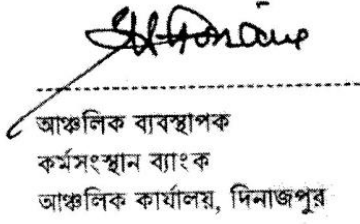 আঞ্চলিক ব্যবস্থাপক
কর্মসংস্থান ব্যাংক
আঞ্চলিক কার্যালয়, দিনাজপুর